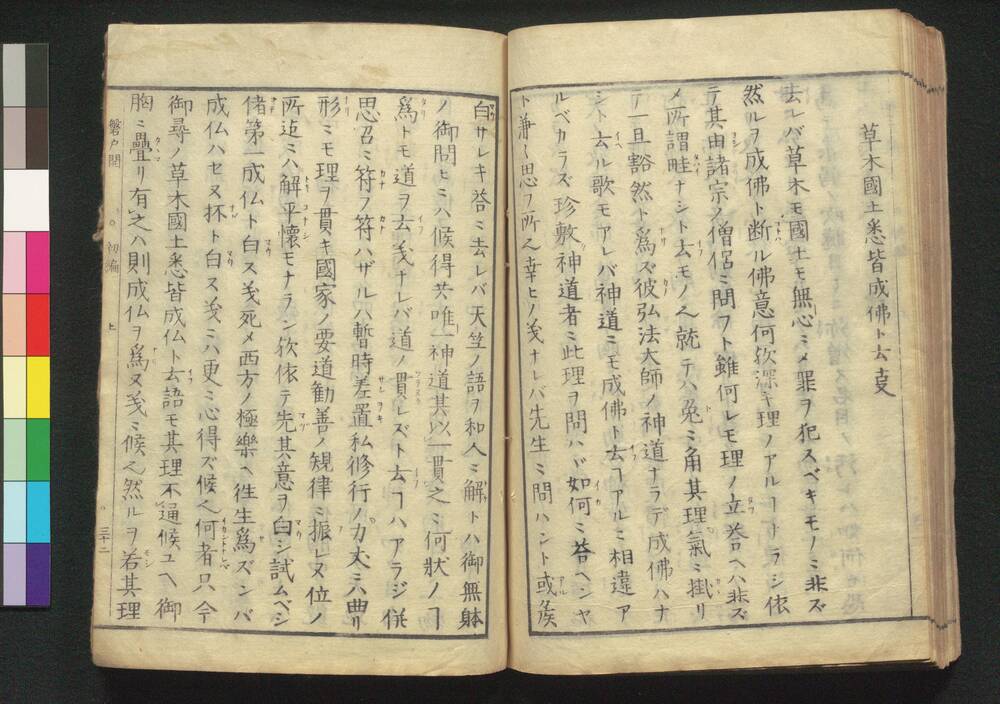 草木國土悉皆成佛ト云叓
去レバ草木モ國土モ無心ミメ罪ヲ犯スベキモノミ非ズ
然ルヲ成佛ト断ル佛意何欤深キ理ノアルヿナラシ依
テ其由諸宗ノ僧侶ミ問フト雖何レモ理ノ立荅ヘハ非ズ
メ所謂畦ナシト云モノ乀就テハ兔ミ角其理氣ミ掛リ
テ一旦豁然ト爲ズ彼弘法大師ノ神道ナラデ成佛ハナ
シト云ル歌モアレバ神道ミモ成佛ト云ヿアルミ相違ア
ルベカラズ珍敷神道者ミ此理ヲ問ハバ如何ミ荅ヘシヤ
ト兼〻思フ所乀幸ヒノ㦮ナレバ先生ミ問ハント或矦
白サレキ荅ミ去レバ天笠ノ語ヲ和人ミ解トハ御無躰
ノ御問ヒミハ候得共唯一神道其以一貫之ミ何状ノヿ
爲トモ道ヲ云㦮ナレバ道ノ貫レズト云ヿハアラジ併
思召ミ符フ符ハザルハ暫時差置私修行ノ力丈ミハ曲リ
形ミモ理ヲ貫キ國家ノ要道勧善ノ規律ミ振レヌ位ノ
所迄ミハ解平懷モナラン欤依テ先其意ヲ白シ試ムベシ
偖第一成仏ト白ス㦮死メ西方ノ極樂ヘ徃生爲ズンバ
成仏ハセヌ抔ト白ス㦮ミハ更ミ心得ズ候乀何者只今
御尋ノ草木國土悉皆成仏ト云語モ其理不通候ユヘ御
胸ミ疊リ有之ハ則成仏ヲ爲ヌ㦮ミ候乀然ルヲ若其理
磐戸開 初編 上 三十二